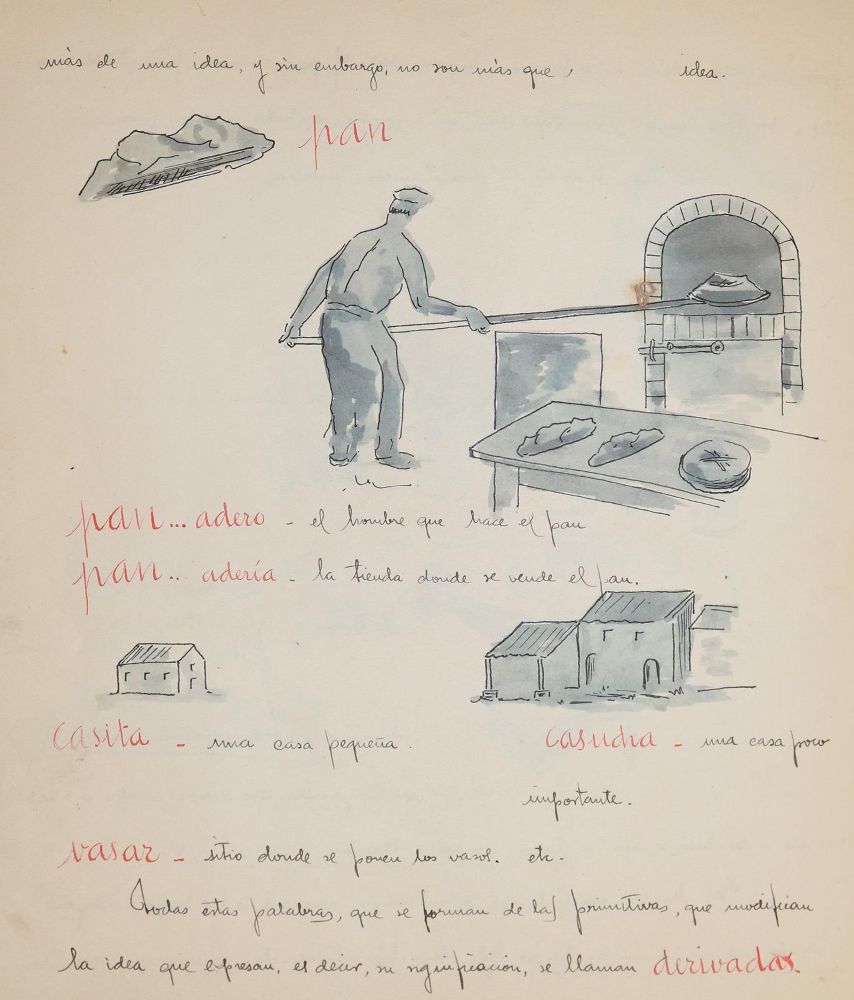 más de una idea, y sin embargo, no son más que , idea.
pan
pan... adero - el hombre que hace el pan
pan.. adería - la tienda donde se vende el pan.
casita - una casa pequeña.
casucha - una casa poco
importante.
vasar - sitio donde se ponen los vasos. etc.
Todas estas palabras, que se forman de las primitivas, que modifican
la idea que expresan, es decir, su significación, se llaman derivadas.